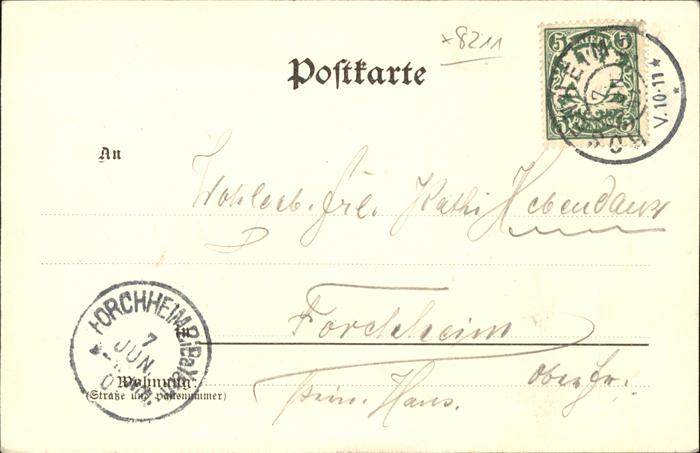 *8211
Postkarte
5 BAYERN 5
PFENNIG
V. 10-11
An
Wohlgeb. Frl. Kathi Hebendanz
FORCHHEIM B. (Bayern)
7
JUN.
in Forchheim
Oberfr.
Wohnung:
(Straße und Hausnummer)
Haus.